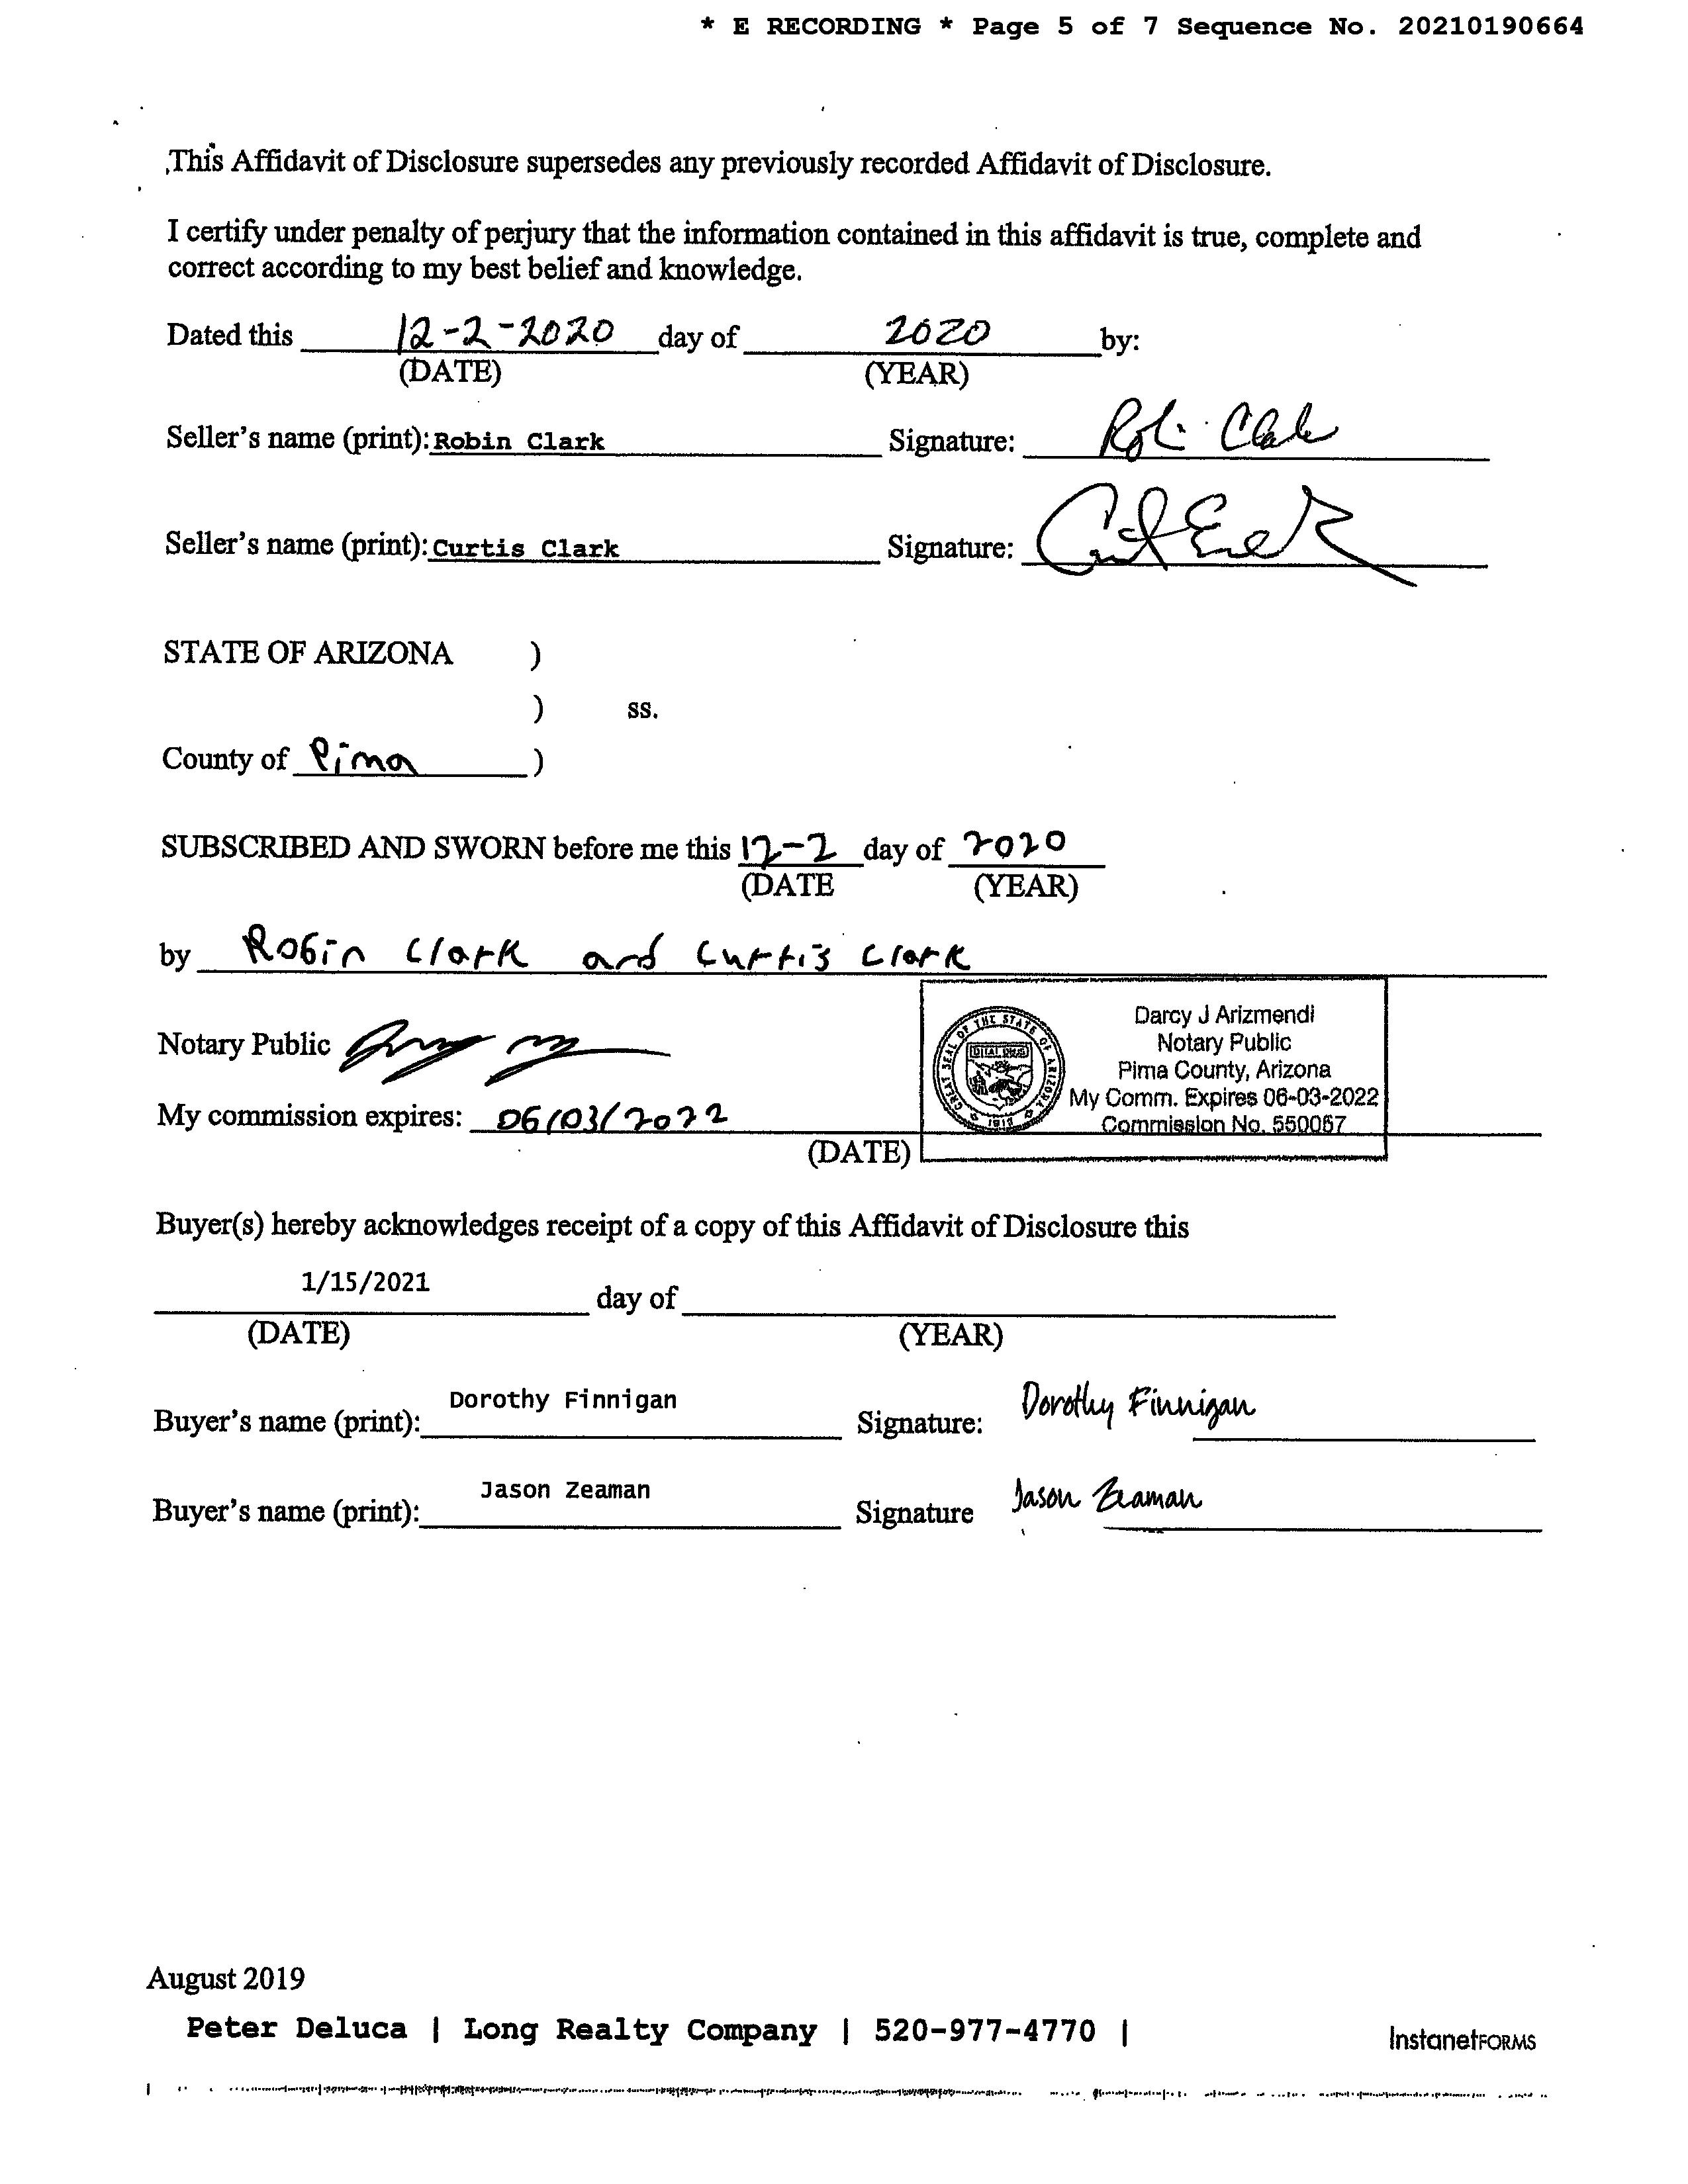 * E RECORDING * Page 5 of 7 Sequence No. 20210190664
This Affidavit of Disclosure supersedes any previously recorded Affidavit of Disclosure.
I certify under penalty of perjury that the information contained in this affidavit is true, complete and
correct according to my best belief and knowledge.
Dated this 12-2-2020 day of 2020 by:
(DATE) (YEAR)
Seller's name (print): Robin Clark Signature: Robin Clark
Seller's name (print): Curtis Clark Signature:
STATE OF ARIZONA )
) ss.
County of Pima )
SUBSCRIBED AND SWORN before me this 12-2 day of 2020
(DATE (YEAR)
by Robin Clark and Curtis Clark
Darcy J Arizmendi
Notary Public
Notary Public
Pima County, Arizona
My Comm. Expires 06-03-2022
Commission No. 550067
GREAT SEAL OF THE STATE OF ARIZONA
DITAT DEUS
1912
My commission expires: 06/03/2022
(DATE)
Buyer(s) hereby acknowledges receipt of a copy of this Affidavit of Disclosure this
1/15/2021 day of
(DATE) (YEAR)
Buyer's name (print): Dorothy Finnigan Signature: Dorothy Finnigan
Buyer's name (print): Jason Zeaman Signature Jason Zeaman
August 2019
Peter Deluca | Long Realty Company | 520-977-4770 |
InstanetFORMS